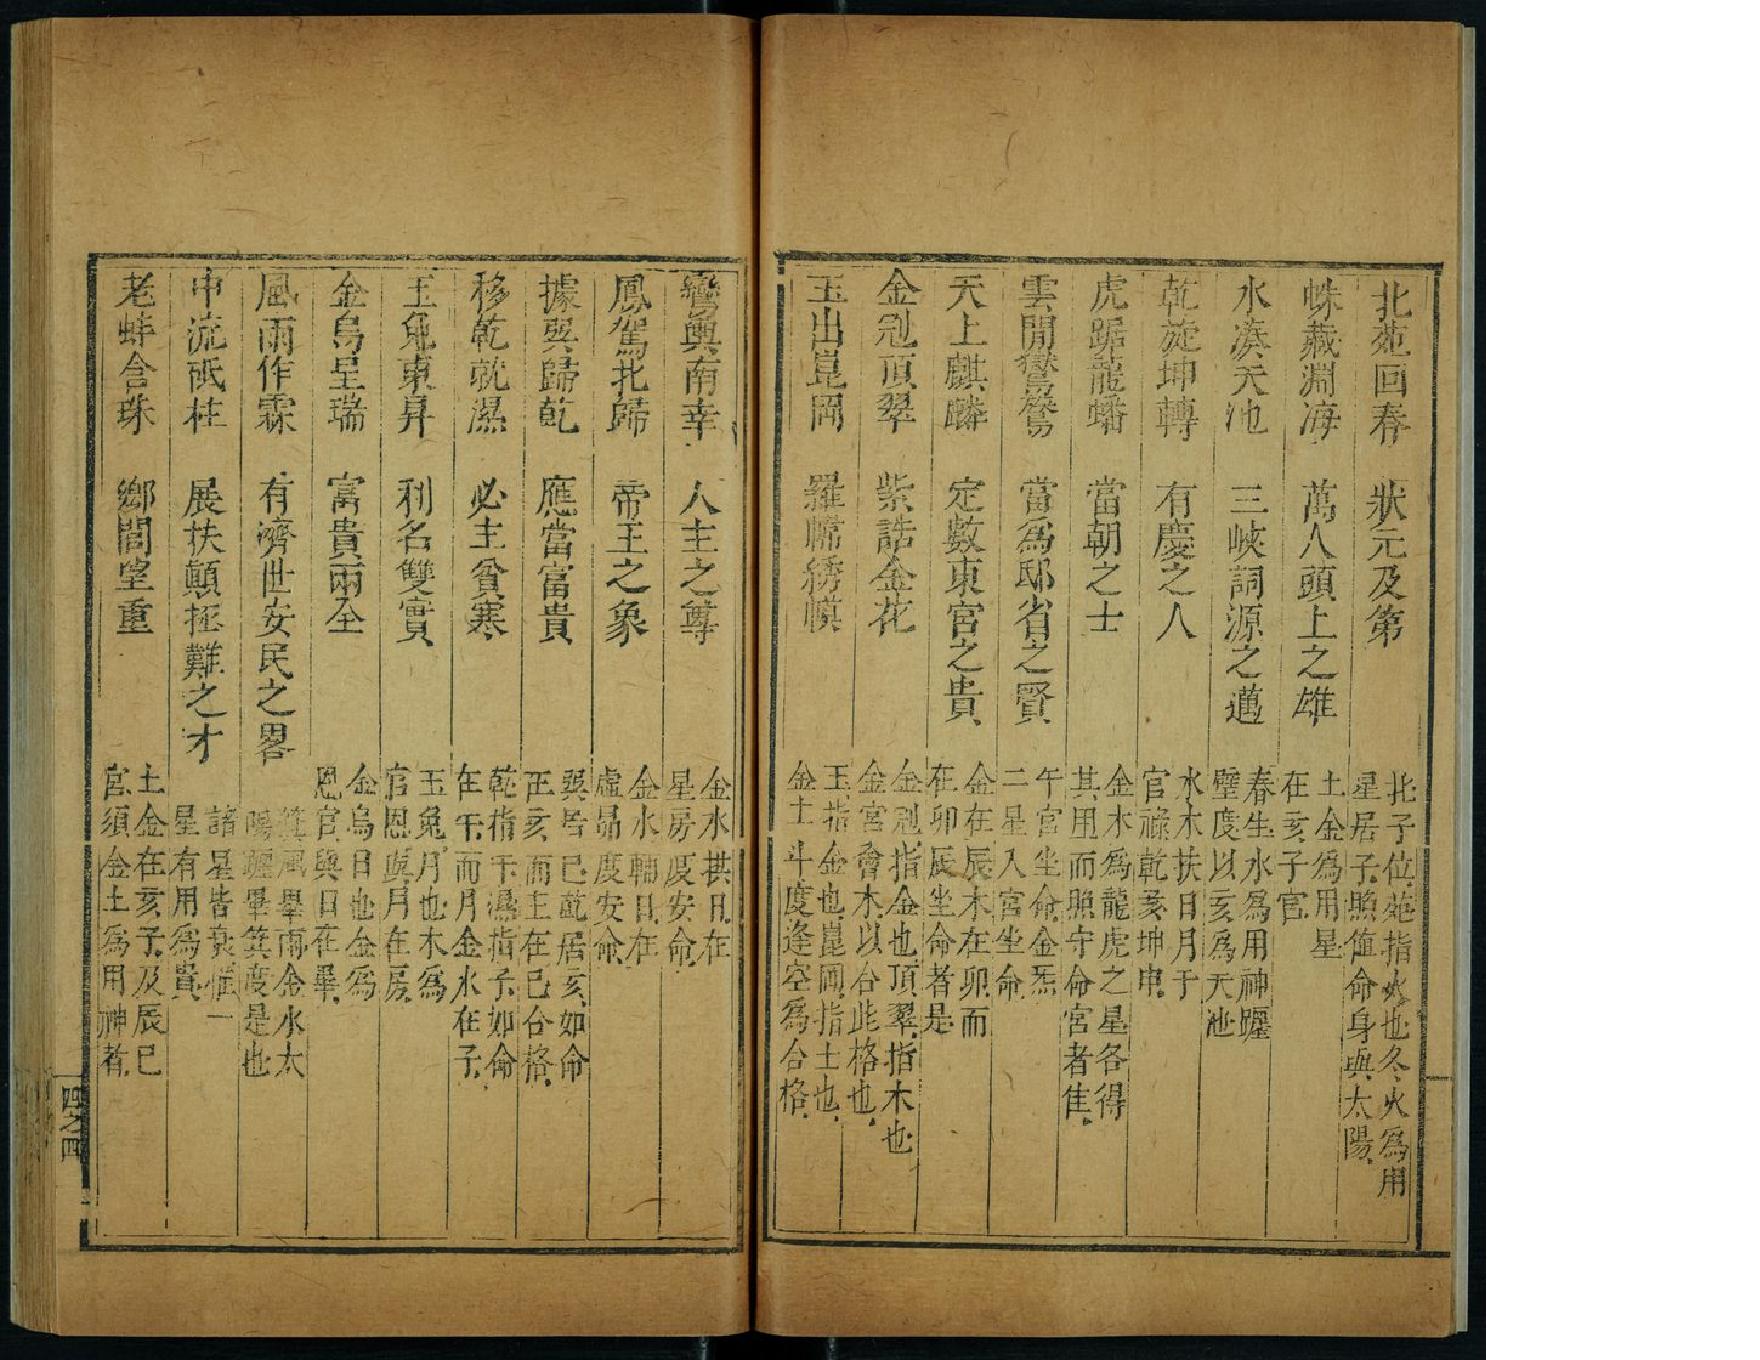 北苑回春　狀元及第　北子位苑指火也冬火爲用星居子照值命身與太陽
蛛藏淵海　萬人頭上之雄　土金爲用星在亥子官
水湊天池　三峽詞源之邁　春生水爲用神躔壁度以亥爲天池
乾旋坤轉　有慶之人　水木扶日月于官祿乾亥坤申
虎踞龍蟠　當朝之士　金木爲龍虎之星各得其用而照守命宮者隹
雲開鸑鷟　當爲邸省之賢　午宮坐命金炁二星入宮坐命
天上麒麟　定數東宮之貴　金在辰木在卯而在卯辰坐命者是
金冠頂翠　紫誥金花　金冠指金也頂翠指木也金宮會木以合此格也
玉出崑岡　羅幃綉幙　玉指金也崑岡指土也金土斗度逢空爲合格
鸞輿南幸　人主之尊　金水拱日在星房度安命
鳳駕北歸　帝王之象　金水輔日在虛昴度安命
據巽歸乾　應當富貴　巽居巳乾居亥如命在亥而主在巳合格
移乾就濕　必主貧寒　乾指午濕指子如命在午而月金水在子
玉兔東昇　利名雙實　玉兔月也木爲官恩與月在房
金烏呈瑞　富貴兩全　金烏日也金爲恩官與日在畢
風雨作霖　有濟世安民之畧　箕風畢雨金水太陽躔畢箕度是也
中流砥柱　展扶顛拯難之才　諸星皆衰惟一星有用爲貴
老蚌含珠　鄉閭望重　土金在亥子及辰巳宮須金土爲用神者
四之四